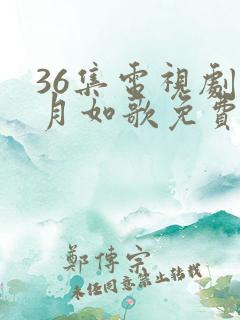 36集電視劇
月如歌免費
鄭傳宗
未經同意禁止轉載